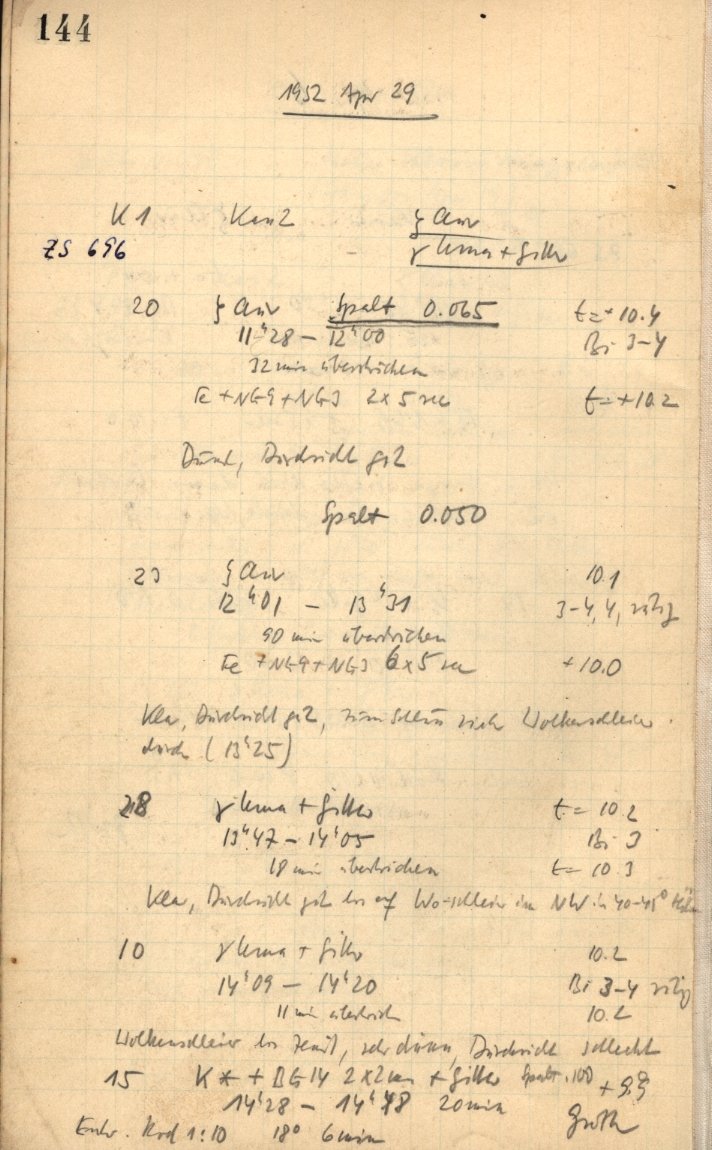 144
1952 Apr 29
K 1 Kam 2 ζ Aur
ZS 696 γ Lema + Gitter
20 ζ Aur Spalt 0.065 t=+10.4
11ʰ28 – 12ʰ00 Bi 3–4
32 min überstrichen
Fe + NG9 + NG3 2 x 5 sec t= +10.2
Dunst, Durchsicht gut
Spalt 0.050
23 ζ Aur 10.1
12ʰ01 – 13ʰ31 3–4, 4, ruhig
90 min überstrichen
Fe + NG9 + NG3 6 x 5 sec +10.0
Klar, Durchsicht gut, zum Schluss Wolkenschleier
durch (13ʰ25)
28 γ Lema + Gitter t= 10.2
13ʰ47 – 14ʰ05 Bi 3
18 min überstrichen t= 10.3
Klar, Durchsicht gut bis auf Wo-schleier im NW in 40–45° Höhe
10 γ Lema + Gitter 10.2
14ʰ09 – 14ʰ20 Bi 3–4 ruhig
11 min überstrich 10.2
Wolkenschleier bis Zenit, sehr dünn, Durchsicht schlecht
15 K * + BG 14 2x2mm + Gitter Spalt .100 + 9.9
14ʰ28 – 14ʰ48 20 min Groth
Entw. Rod 1:10 18° 6 min